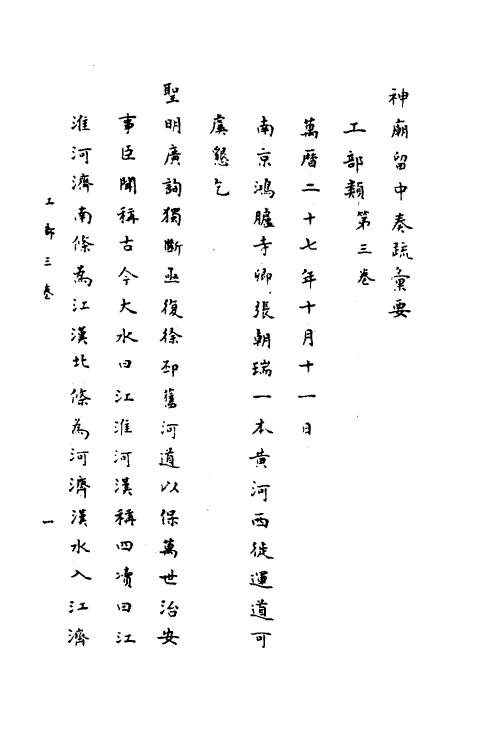 神廟留中奏疏彙要
工部類第三卷
萬曆二十七年十月十一日
南京鴻臚寺卿張朝瑞一本黄河西徙運道可
虞懇乞
聖明廣詢獨斷亟復徐邳舊河道以保萬世治安
事臣聞稱古今大水曰江淮河漢稱四瀆曰江
淮河濟南條為江漢北條為河濟漢水入江濟
工部三卷
一